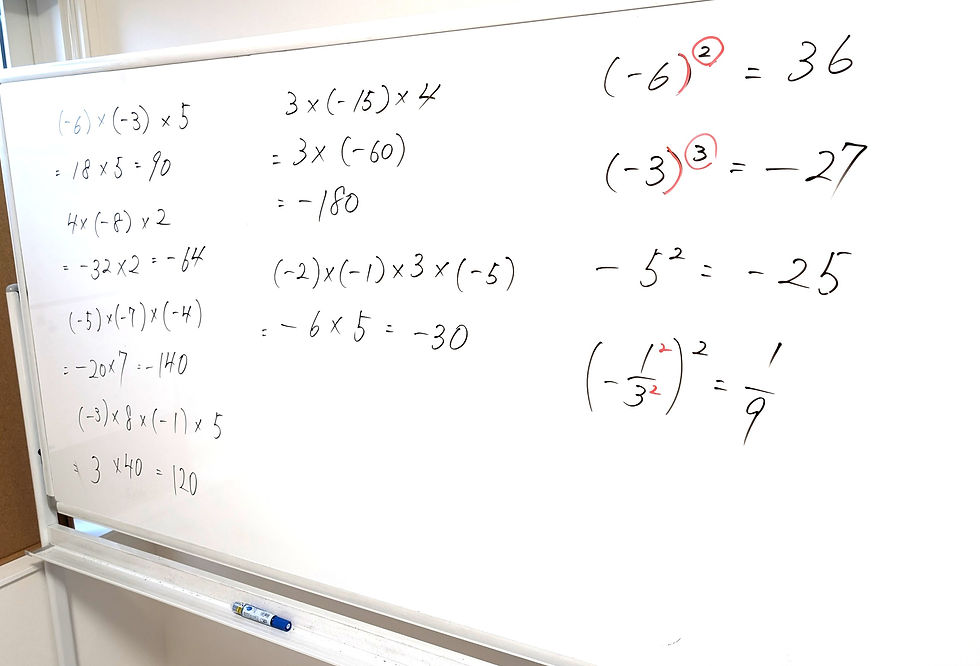 (-6) × (-3) × 5
= 18 × 5 = 90
4 × (-8) × 2
= -32 × 2 = -64
(-5) × (-7) × (-4)
= -20 × 7 = -140
(-3) × 8 × (-1) × 5
= 3 × 40 = 120
3 × (-15) × 4
= 3 × (-60)
= -180
(-2) × (-1) × 3 × (-5)
= -6 × 5 = -30
(-6)² = 36
(-3)³ = -27
-5² = -25
(-1²/3²)² = 1/9